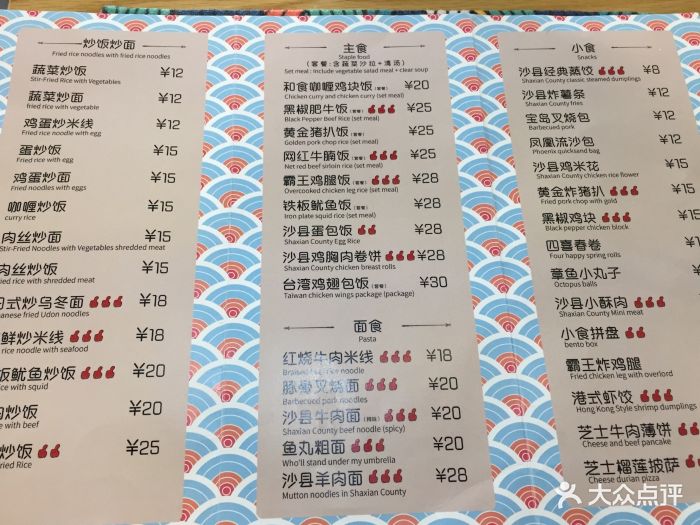 炒饭炒面
Fried rice noodles with fried rice noodles
蔬菜炒饭 ¥12
Stir-Fried Rice with Vegetables
蔬菜炒面 ¥12
fried rice with vegetable
鸡蛋炒米线 ¥12
Fried rice noodle with egg
蛋炒饭 ¥15
Fried rice with egg
鸡蛋炒面 ¥15
Fried noodles with eggs
咖喱炒饭 ¥15
curry rice
肉丝炒面 ¥15
Stir-Fried Noodles with Vegetables shredded meat
肉丝炒饭 ¥15
rice with shredded meat
式炒乌冬面 ¥18
Udon noodles
鲜炒米线 ¥18
rice noodle with seafood
板鱿鱼炒饭 ¥20
rice with squid
肉炒饭 ¥20
rice with beef
炒饭 ¥25
Fried Rice
主食
Staple food
（套餐：含蔬菜沙拉+清汤）
Set meal : Include vegetable salad meat + clear soup
和食咖喱鸡块饭（套餐） ¥20
Chicken curry and chicken curry (set meal)
黑椒肥牛饭（套餐） ¥25
Black Pepper Beef Rice (set meal)
黄金猪扒饭（套餐） ¥25
Golden pork chop rice (set meal)
网红牛腩饭（套餐） ¥25
Net red beef sirloin rice (set meal)
霸王鸡腿饭（套餐） ¥28
Overcooked chicken leg rice (set meal)
铁板鱿鱼饭（套餐） ¥28
Iron plate squid rice (set meal)
沙县蛋包饭 ¥28
Shaxian County Egg Rice
沙县鸡胸肉卷饼 ¥28
Shaxian County chicken breast rolls
台湾鸡翅包饭（套餐） ¥30
Taiwan chicken wings package (package)
面食
Pasta
红烧牛肉米线 ¥18
Braised beef rice noodle
豚骨叉烧面 ¥20
Barbecued pork noodles
沙县牛肉面（辣味） ¥20
Shaxian County beef noodle (spicy)
鱼丸粗面 ¥20
Who'll stand under my umbrella
沙县羊肉面 ¥28
Mutton noodles in Shaxian County
小食
Snacks
沙县经典蒸饺 ¥8
Shaxian County classic steamed dumplings
沙县炸薯条
Shaxian County fries
宝岛叉烧包
Barbecued pork
凤凰流沙包
Phoenix quicksand bag
沙县鸡米花
Shaxian County chicken rice flower
黄金炸猪扒
Fried pork chop with gold
黑椒鸡块
Black pepper chicken block
四喜春卷
Four happy spring rolls
章鱼小丸子
Octopus balls
沙县小酥肉
Shaxian County Mini meat
小食拼盘
bento box
霸王炸鸡腿
Fried chicken leg with overlord
港式虾饺
Hong Kong Style shrimp dumplings
芝士牛肉薄饼
Cheese and beef pancake
芝士榴莲披萨
Cheese durian pizza
大众点评